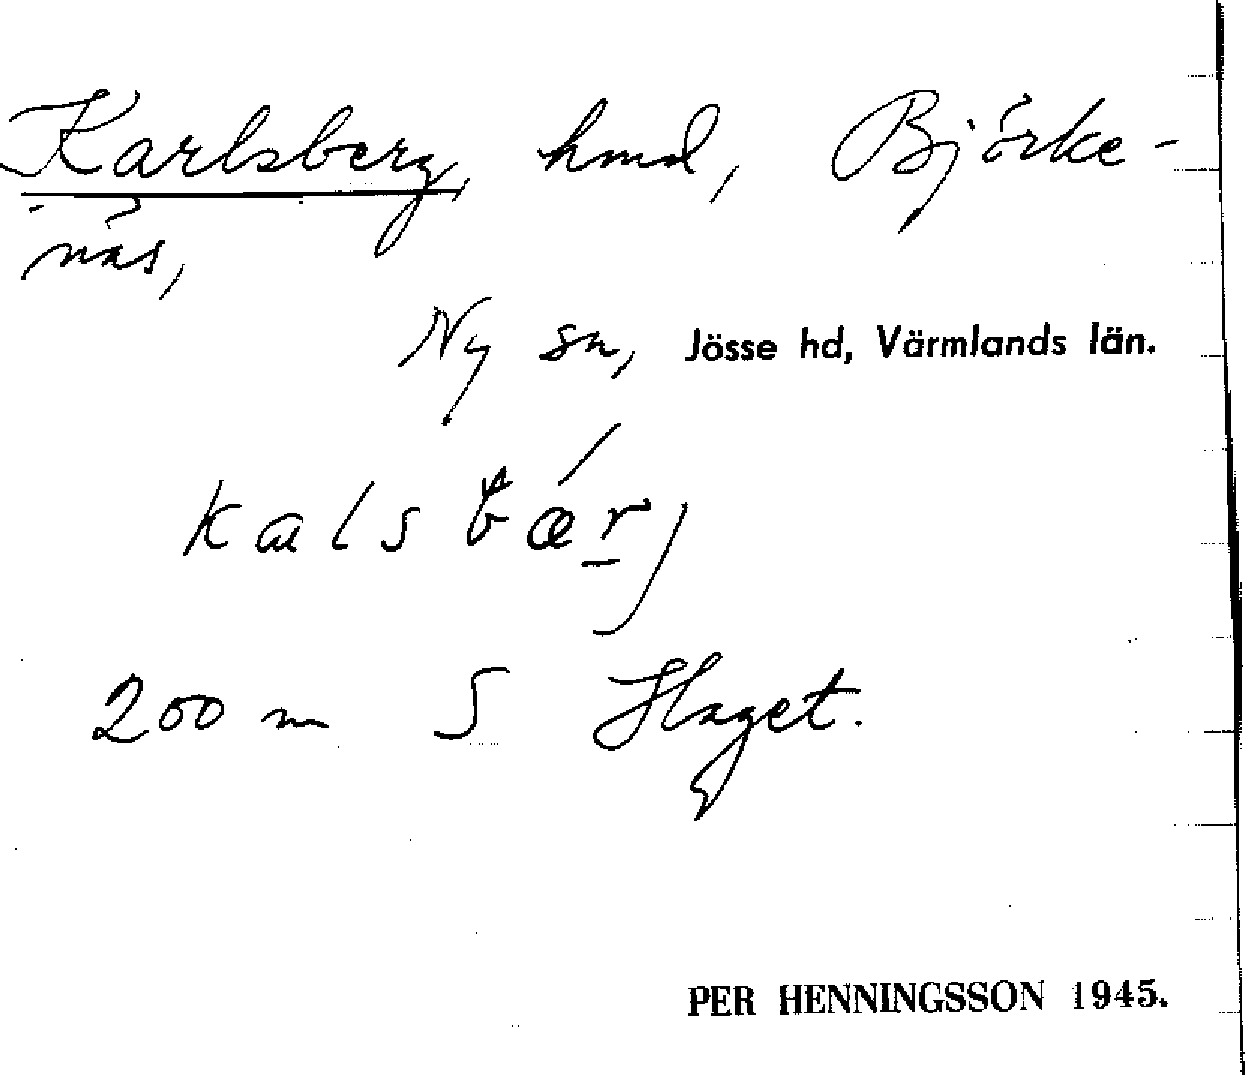 Karlsberg, hmd, Björke-
näs,
Ny sn, Jösse hd, Värmlands län.
kalsbær̲j
200 m S Haget.
PER HENNINGSSON 1945.